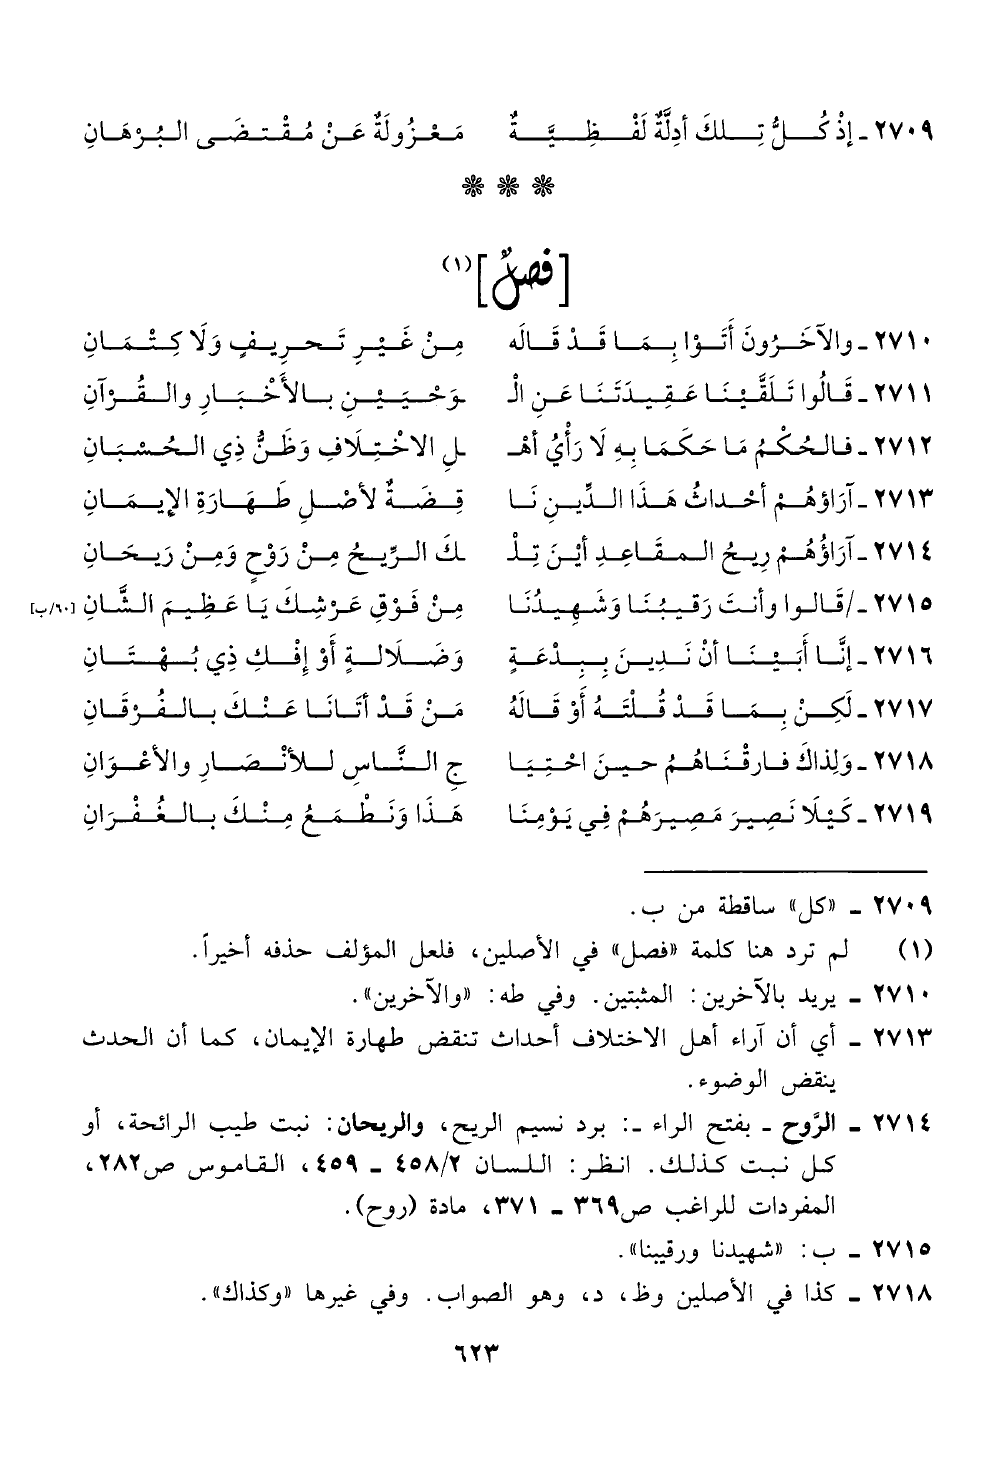 ٢٧٠٩ ـ إذْ كُلُّ تِلكَ أدِلَّةٌ لَفْظِيَّةٌ مَعْزُولَةٌ عَنْ مُقْتضَى البُرْهَانِ
* * *
[فصلٌ](١)
٢٧١٠ ـ والآخَرُونَ أتَوْا بِمَا قَدْ قَالَه مِنْ غَيْرِ تَحريفٍ وَلَا كِتْمَانِ
٢٧١١ ـ قَالُوا تَلَقَّيْنَا عَقِيدَتَنَا عَنِ الْـ ـوَحْيَيْنِ بالأَخْبَارِ والقُرْآنِ
٢٧١٢ ـ فالحُكْمُ مَا حَكَمَا بِهِ لَا رَأْيُ أهْـ ـلِ الاخْتِلَافِ وَظَنُّ ذِي الحُسْبَانِ
٢٧١٣ ـ آرَاؤهُمْ أحْدَاثُ هَذَا الدِّينِ نَا قِضَةٌ لأصْلِ طَهَارَةِ الإيمَانِ
٢٧١٤ ـ آرَاؤُهُمْ رِيحُ المقَاعِدِ أيْنَ تِلْـ ـكَ الرِّيحُ مِنْ رَوْحٍ وَمِنْ رَيحَانِ
٢٧١٥ ـ /قَالوا وأنتَ رَقيبُنَا وَشَهِيدُنَا مِنْ فَوْقِ عَرْشِكَ يَا عَظِيمَ الشَّانِ [٦٠/ب]
٢٧١٦ ـ إنَّا أَبَيْنَا أنْ نَدِينَ بِبِدْعَةٍ وَضَلَالةٍ أوْ إفْكِ ذِي بُهْتَانِ
٢٧١٧ ـ لَكِنْ بِمَا قَدْ قُلْتَهُ أوْ قَالَهُ مَنْ قَدْ أتَانَا عَنْكَ بالفُرْقَانِ
٢٧١٨ ـ وَلِذَاكَ فارقْنَاهُمُ حينَ احْتِيَا جِ النَّاسِ للأنْصَارِ والأعْوَانِ
٢٧١٩ ـ كَيْلَا نَصِيرَ مَصِيرَهُمْ فِي يَوْمِنَا هَذَا وَنَطْمَعُ مِنْكَ بالغُفْرَانِ
٢٧٠٩ ـ «كل» ساقطة من ب.
(١) لم ترد هنا كلمة «فصل» في الأصلين، فلعل المؤلف حذفه أخيراً.
٢٧١٠ ـ يريد بالآخرين: المثبتين. وفي طه: «والآخرين».
٢٧١٣ ـ أي أن آراء أهل الاختلاف أحداث تنقض طهارة الإيمان، كما أن الحدث
ينقض الوضوء.
٢٧١٤ ـ الرَّوح ـ بفتح الراء ـ: برد نسيم الريح، والريحان: نبت طيب الرائحة، أو
كل نبت كذلك. انظر: اللسان ٤٥٨/٢ ـ ٤٥٩، القاموس ص٢٨٢،
المفردات للراغب ص٣٦٩ ـ ٣٧١، مادة (روح).
٢٧١٥ ـ ب: «شهيدنا ورقيبنا».
٢٧١٨ ـ كذا في الأصلين وظ، د، وهو الصواب. وفي غيرها «وكذاك».
٦٢٣